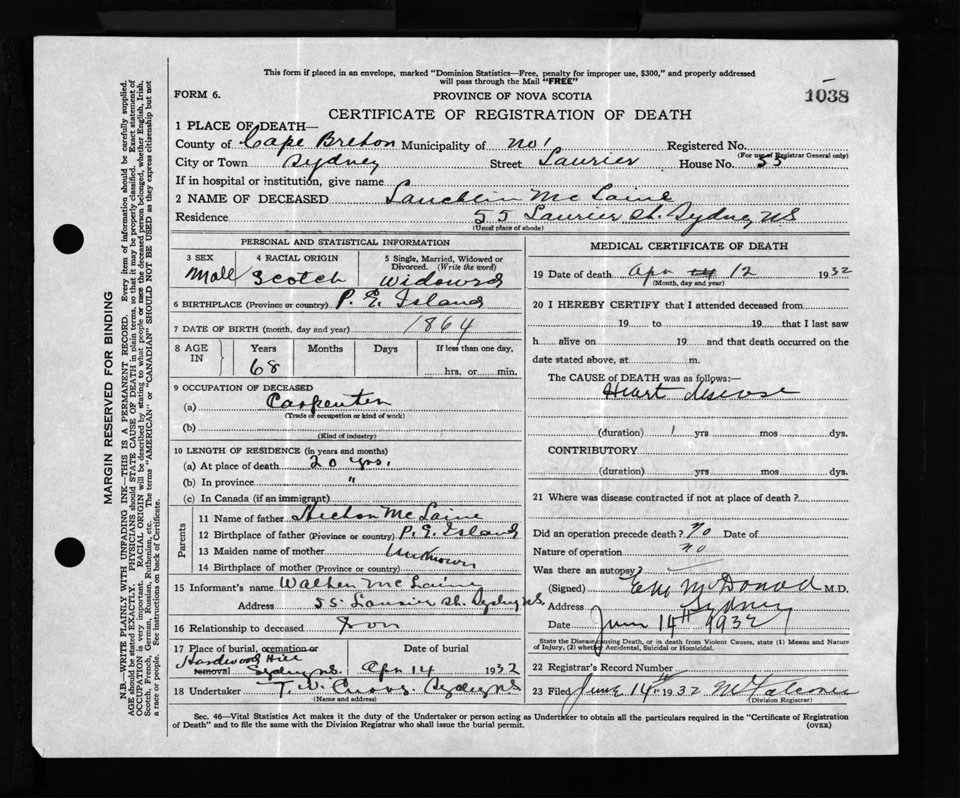 This form if placed in an envelope, marked "Dominion Statistics—Free, penalty for improper use, $300," and properly addressed
will pass through the Mail "FREE"
FORM 6.
PROVINCE OF NOVA SCOTIA
1038
CERTIFICATE OF REGISTRATION OF DEATH
1 PLACE OF DEATH—
County of Cape Breton Municipality of No 1 Registered No.
(For use of Registrar General only)
City or Town Sydney Street Laurier House No. 55
If in hospital or institution, give name
2 NAME OF DECEASED Lauchlin McLaine
Residence 55 Laurier St. Sydney NS
(Usual place of abode)
PERSONAL AND STATISTICAL INFORMATION
3 SEX
Male
4 RACIAL ORIGIN
Scotch
5 Single, Married, Widowed or
Divorced. (Write the word)
Widowed
6 BIRTHPLACE (Province or country) P. E. Island
7 DATE OF BIRTH (month, day and year) 1864
8 AGE IN
Years Months Days If less than one day,
68 hrs. or min.
9 OCCUPATION OF DECEASED
(a) Carpenter
(Trade or occupation or kind of work)
(b)
(Kind of industry)
10 LENGTH OF RESIDENCE (in years and months)
(a) At place of death 20 yrs.
(b) In province "
(c) In Canada (if an immigrant)
Parents
11 Name of father Hecton McLaine
12 Birthplace of father (Province or country) P. E. Island
13 Maiden name of mother Unknown
14 Birthplace of mother (Province or country)
15 Informant's name Walter McLaine
Address 55 Laurier St. Sydney N.S.
16 Relationship to deceased Son
17 Place of burial, cremation or removal Date of burial
Hardwood Hill
Sydney N.S. Apr 14 1932
18 Undertaker T. W. Sydney NS
(Name and address)
MEDICAL CERTIFICATE OF DEATH
19 Date of death Apr 12 1932
(Month, day and year)
20 I HEREBY CERTIFY that I attended deceased from
19 to 19 that I last saw
h alive on 19 and that death occurred on the
date stated above, at m.
The CAUSE of DEATH was as follows:—
Heart disease
(duration) 1 yrs mos dys.
CONTRIBUTORY
(duration) yrs mos dys.
21 Where was disease contracted if not at place of death?
Did an operation precede death? No Date of
Nature of operation no
Was there an autopsy?
(Signed) McDonald M.D.
Address Sydney
Date June 14th 1932
State the Disease causing Death, or in death from Violent Causes, state (1) Means and Nature
of Injury, (2) whether Accidental, Suicidal or Homicidal.
22 Registrar's Record Number
23 Filed June 14th 1932
(Division Registrar)
Sec. 46—Vital Statistics Act makes it the duty of the Undertaker or person acting as Undertaker to obtain all the particulars required in the "Certificate of Registration
of Death" and to file the same with the Division Registrar who shall issue the burial permit.
(OVER)
MARGIN RESERVED FOR BINDING
N.B.—WRITE PLAINLY WITH UNFADING INK—THIS IS A PERMANENT RECORD. Every item of information should be carefully supplied.
AGE should be stated EXACTLY. PHYSICIANS should STATE CAUSE OF DEATH in plain terms, so that it may be properly classified. Exact statement of
OCCUPATION is very important. RACIAL ORIGIN will be described by stating to what people or race the deceased person belonged, whether English, Irish,
Scotch, French, German, Russian, Ruthenian, etc. The terms "AMERICAN" or "CANADIAN" SHOULD NOT BE USED as they express citizenship but not
a race or people. See instructions on back of Certificate.